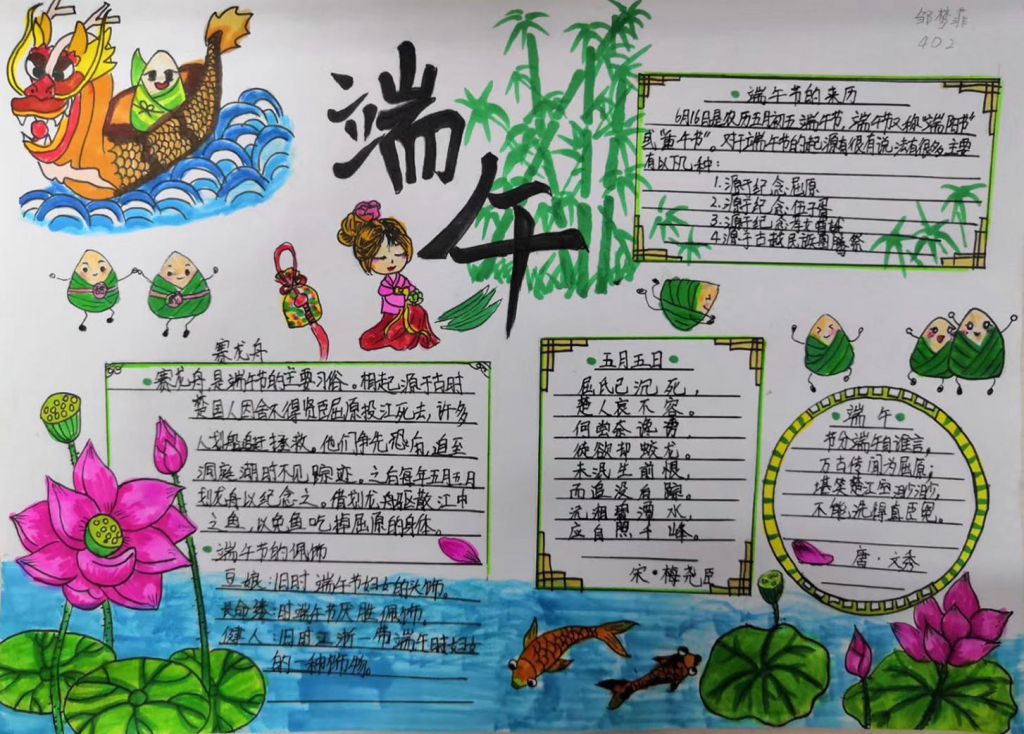 邹梦菲
402
端午
端午节的来历
6月16日是农历五月初五端午节，端午节又称"端阳节"
或"重午节"。对于端午节的起源有很有说法有很多,主要
有以下几种：
1.源于纪念屈原
2.源于纪念伍子胥
3.源于纪念孝女曹娥
4.源于古越民族图腾祭
赛龙舟
赛龙舟是端午节的主要习俗。相起源于古时
楚国人因舍不得贤臣屈原投江死去,许多
人划船追赶拯救。他们争先恐后,追至
洞庭湖时不见踪迹。之后每年五月五日
划龙舟以纪念之。借划龙舟驱散江中
之鱼，以免鱼吃掉屈原的身体。
端午节的佩饰
豆娘：旧时端午节妇女的头饰。
长命缕：时端午节厌胜佩饰。
健人：旧时江浙一带端午时妇女
的一种饰物。
五月五日
屈氏已沉死，
楚人哀不容。
何尝奈谗谤，
徒欲却蛟龙。
未泯生前恨，
而追没后踪。
沅湘碧潭水，
应自照千峰。
宋·梅尧臣
端午
节分端午自谁言，
万古传闻为屈原；
堪笑楚江空渺渺，
不能洗得直臣冤。
唐·文秀